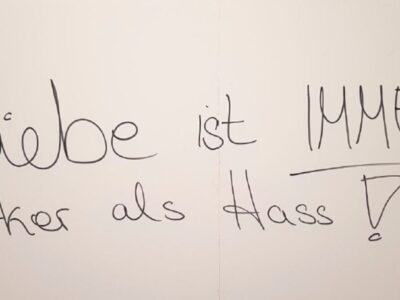 iebe ist IMME
ker als Hass!